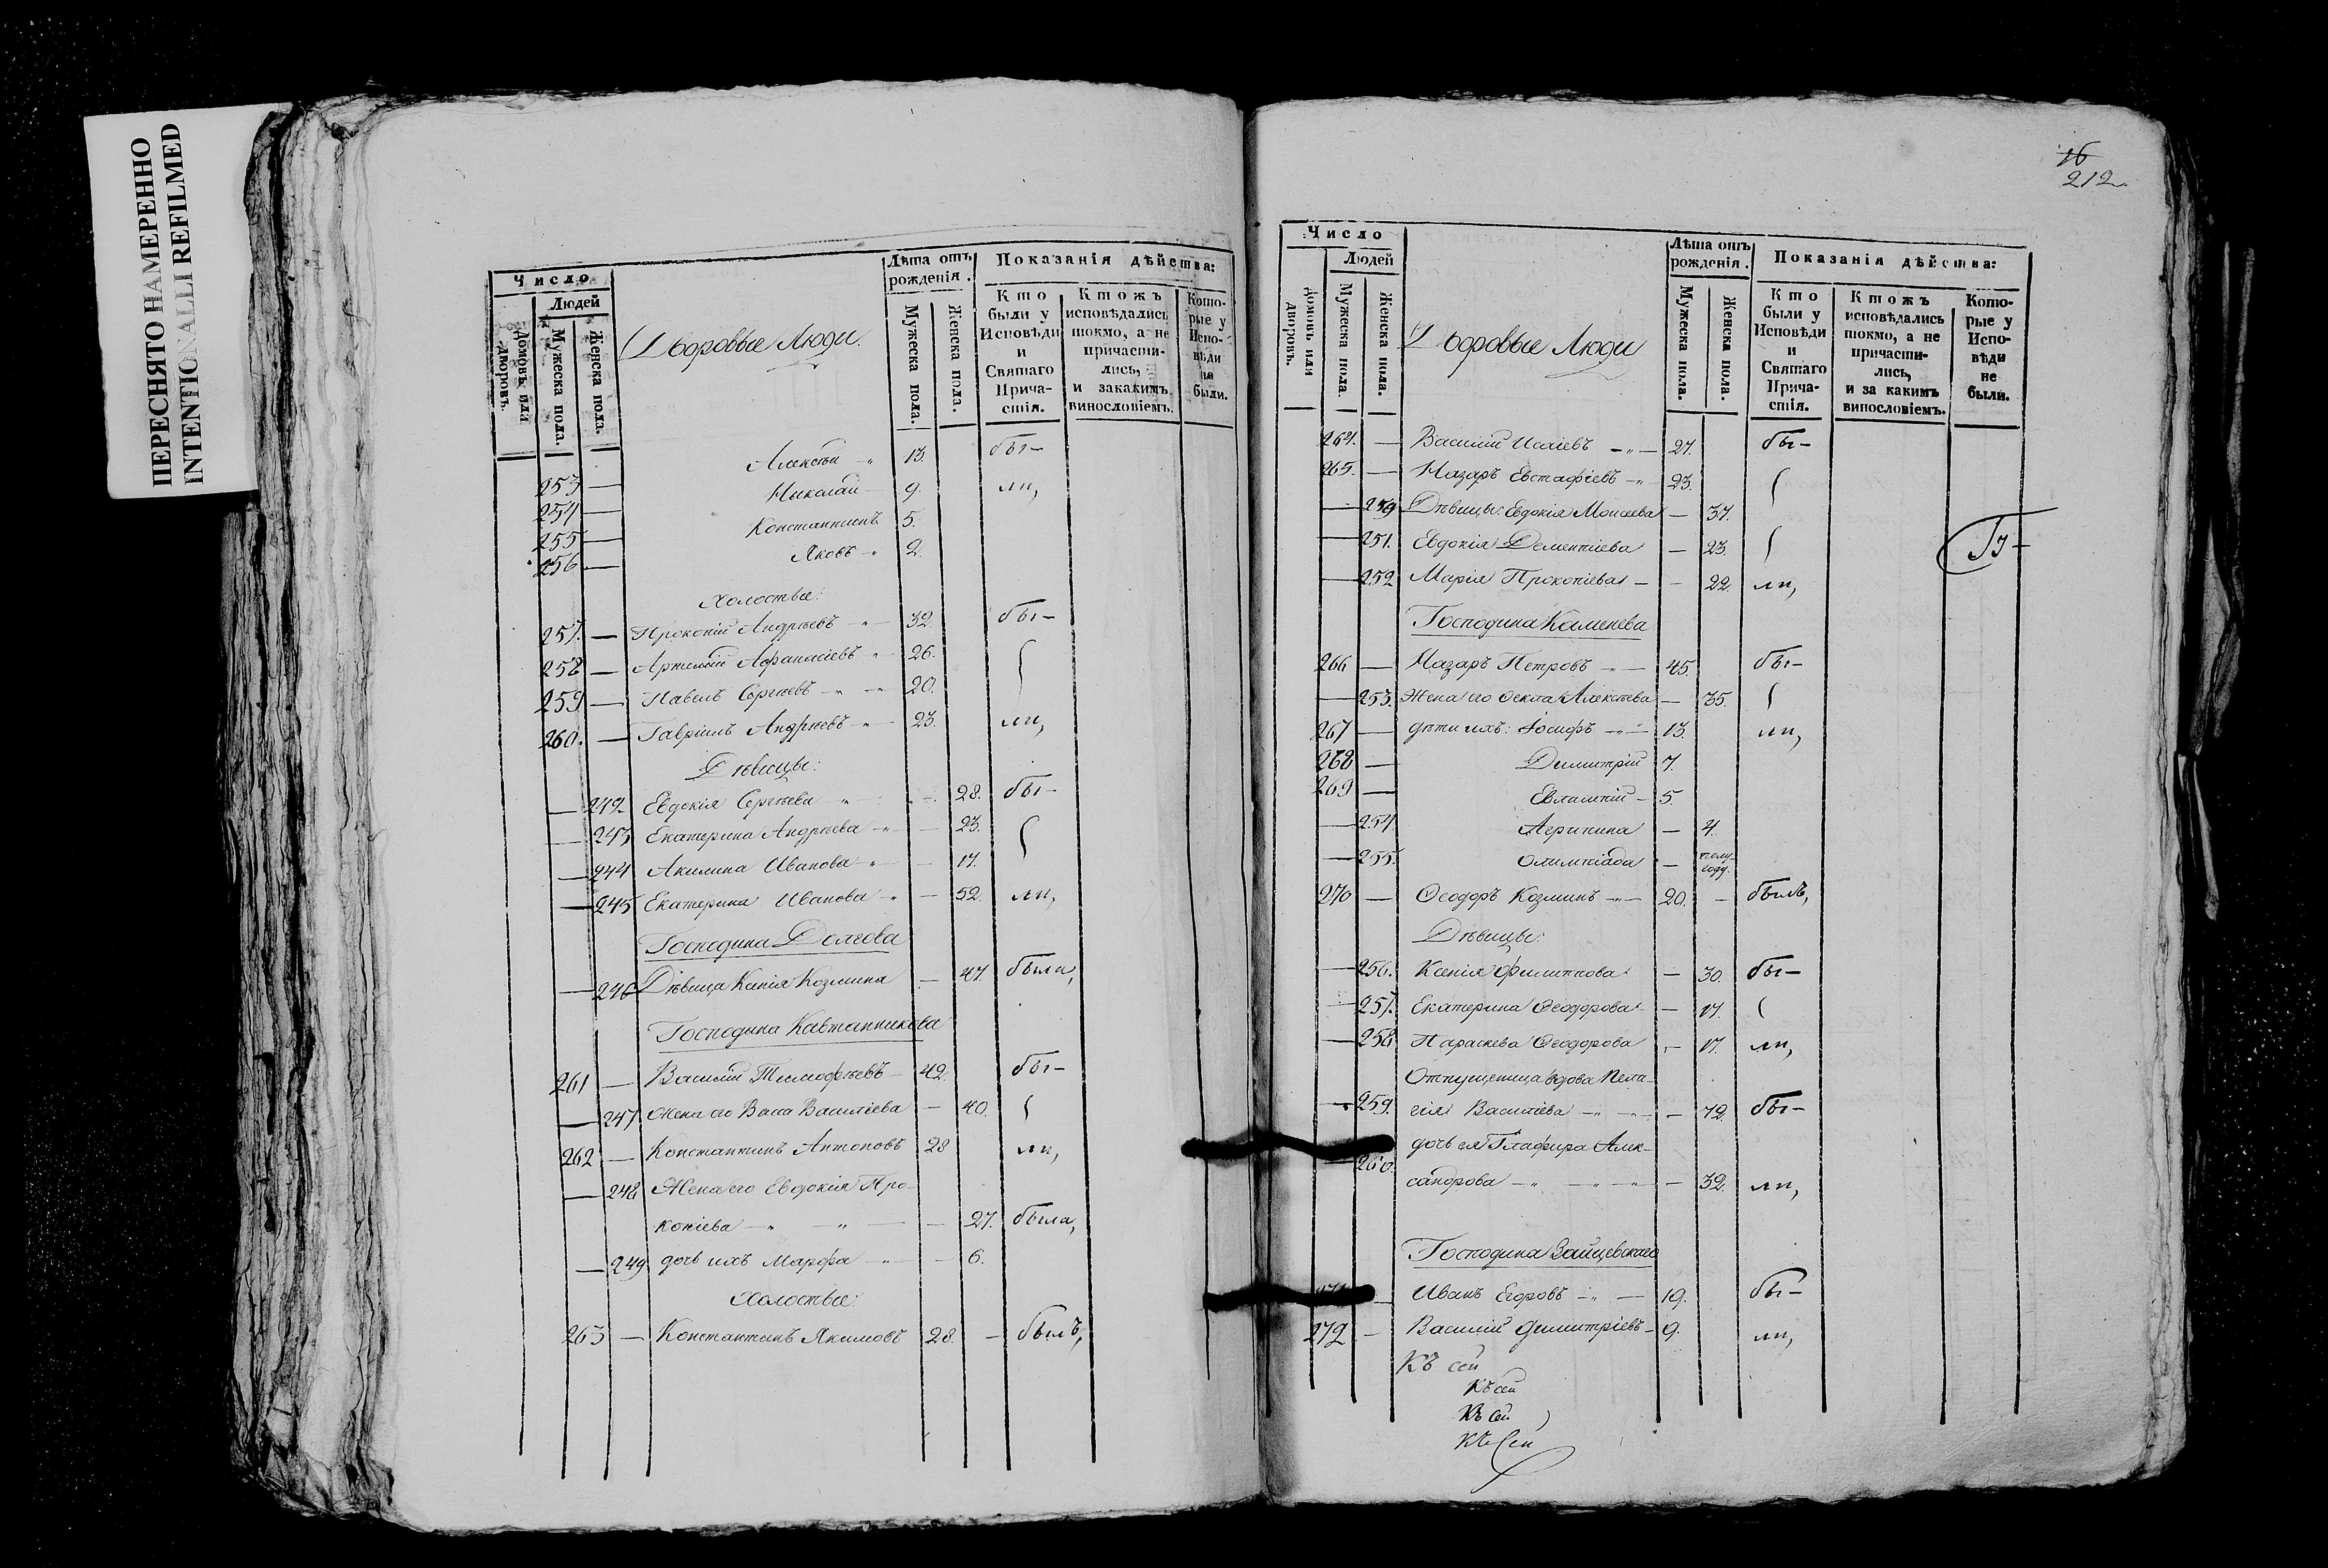 ПЕРЕСНЯТО НАМЕРЕННО
INTENTIONALLI REFILMED
Число
Людей
Домовъ или дворовъ.
Мужеска пола.
Женска пола.
Дворовые Люди.
Лѣта отъ рожденія.
Мужеска пола.
Женска пола.
Показанія дѣйства:
Кто были у Исповѣди и Святаго Причастія.
Ктожъ исповѣдались токмо, а не причастились, и закакимъ винословіемъ.
Которые у Исповѣди не были.
253 — Алексѣй 13. бы-
254 — Николай 9. ли,
255 — Константинъ 5.
256 — Яковъ 2.
Холостые:
257. — Прокопій Андреевъ 32. бы-
258 — Артемій Афанасіевъ 26.
259 — Павелъ Сергѣевъ 20.
260. — Гавріилъ Андреевъ 23. ли,
Дѣвицы:
— 242 Евдокія Сергѣева 28. бы-
— 243 Екатерина Андреева — 23.
— 244 Акилина Иванова — 17.
— 245 Екатерина Иванова — 52. ли,
Господина Долгова
— 246 Дѣвица Ксенія Козмина — 47. была,
Господина Кавтанникова
261 — Василій Тимофѣевъ 42. бы-
— 247 Жена его Васса Василіева — 40.
262 — Константинъ Антоновъ 28 ли,
— 248 Жена его Евдокія Про-
копіева — 27. была,
— 249 дочь ихъ Марфа — 6.
Холостые:
263 — Константинъ Якимовъ 28. — былъ,
16
212
Число
Людей
домовъ или дворовъ.
Мужеска пола.
Женска пола.
Дворовые Люди
Лѣта отъ рожденія.
Мужеска пола.
Женска пола.
Показанія дѣйства:
Кто были у Исповѣди и Святаго Причастія.
Ктожъ исповѣдались токмо, а не причастились, и за какимъ винословіемъ.
Которые у Исповѣди не были.
264. — Василій Исаіевъ 27. бы-
265. — Назаръ Евстафіевъ 23.
— Дѣвицы: Евдокія Моисеева — 37.
— 251. Евдокія Дементіева — 23.
— 252 Марія Прокопіева — 22. ли,
Господина Каменева
266 — Назаръ Петровъ 45. бы-
— 253. Жена его Ѳекла Алексѣева — 35.
267 — дѣти ихъ: Іосифъ 13. ли,
268 — Димитрій 7.
269 — Евлампій 5.
— 254. Агрипина — 4.
— 255. Олимпіада — полу-
году.
270 — Ѳеодоръ Козминъ 20. — былъ,
Дѣвицы:
— 256. Ксенія Филиппова — 30. бы-
— 257. Екатерина Ѳеодорова — 17.
— 258 Параскева Ѳеодорова — 17. ли,
Отпущеница вдова Пела-
— 259. гія Василіева — 72. бы-
дочь ея Глафира Алек-
260. сандрова — 32. ли,
Господина Зайцевскаго
— Иванъ Егоровъ 19. бы-
272 — Василій Димитріевъ 9. ли,
Къ сей
Къ сей
Къ сей
Къ сей